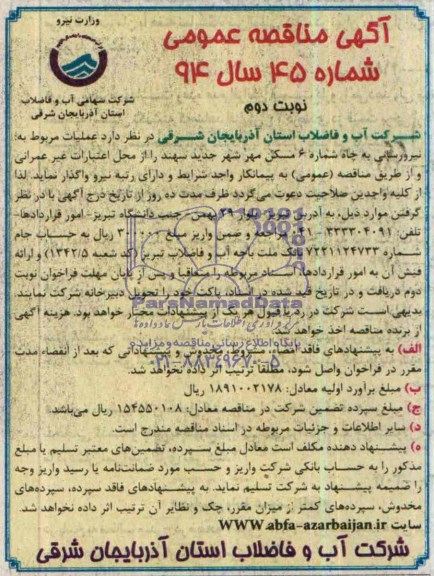 وزارت نیرو
شرکت سهامی آب و فاضلاب
استان آذربایجان شرقی
آگهی مناقصه عمومی
شماره ۴۵ سال ۹۴
نوبت دوم
شرکت آب و فاضلاب استان آذربایجان شرقی در نظر دارد عملیات مربوط به:
نیرورسانی به چاه شماره ۶ مسکن مهر شهر جدید سهند را از محل اعتبارات غیر عمرانی
و از طریق مناقصه (عمومی) به پیمانکار واجد شرایط و دارای رتبه نیرو واگذار نماید. لذا
از کلیه واجدین صلاحیت دعوت می‌گردد ظرف مدت ده روز از تاریخ درج آگهی با در نظر
گرفتن موارد ذیل، به آدرس: تبریز - بلوار ۲۹ بهمن - جنب دانشگاه تبریز - امور قراردادها-
تلفن: ۳۳۳۰۴۰۹۱-۰۴۱ مراجعه و ضمن واریز مبلغ ریال به حساب جام
شماره ۷۲۲۱۱۲۴۷۳۳ بانک ملت باجه آب و فاضلاب تبریز (کد شعبه ۱۳۴۲/۵) و ارائه
فیش آن به امور قراردادها، اسناد مربوطه را متعاقبا و پس از پایان مهلت فراخوان نوبت
دوم دریافت و در تاریخ قید شده در اسناد، پاکات خود را تحویل دبیرخانه شرکت نمایند.
بدیهی است شرکت در رد یا قبول هر یک از پیشنهادات مختار خواهد بود. هزینه آگهی
از برنده مناقصه اخذ خواهد شد.
الف) به پیشنهادهای فاقد امضاء، مشروط، مخدوش و پیشنهاداتی که بعد از انقضاء مدت
مقرر در فراخوان واصل شود، مطلقا ترتیب اثر داده نخواهد شد.
ب) مبلغ برآورد اولیه معادل: ۱۸۹۱۰۰۲۱۷۸ ریال
ج) مبلغ سپرده تضمین شرکت در مناقصه معادل: ۱۵۴۵۵۰۱۰۸ ریال می‌باشد.
د) سایر اطلاعات و جزئیات مربوطه در اسناد مناقصه مندرج است.
ه) پیشنهاد دهنده مکلف است معادل مبلغ سپرده، تضمین‌های معتبر تسلیم یا مبلغ
مذکور را به حساب بانکی شرکت واریز و حسب مورد ضمانت‌نامه یا رسید واریز وجه
را ضمیمه پیشنهاد به شرکت تسلیم نماید. به پیشنهادهای فاقد سپرده، سپرده‌های
مخدوش، سپرده‌های کمتر از میزان مقرر، چک و نظایر آن ترتیب اثر داده نخواهد شد.
سایت WWW.abfa-azarbaijan.ir
شرکت آب و فاضلاب استان آذربایجان شرقی
ParsNamadData
پایگاه اطلاع رسانی مناقصه و مزایده
۰۲۱-۸۸۳۴۹۶۷۰-۵